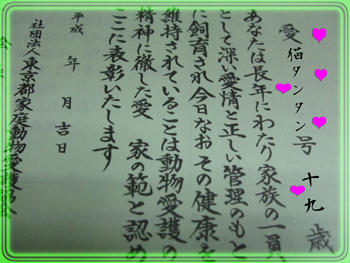 愛猫タンタン号
十九歳
あなたは長年にわたり家族の一員
として深い愛情と正しい管理のもと
に飼育され今日なおその健康を
維持されていることは動物愛護の
精神に徹した愛 家の範と認め
ここに表彰いたします
平成 年 月吉日
社団法人東京都家庭動物愛護協会